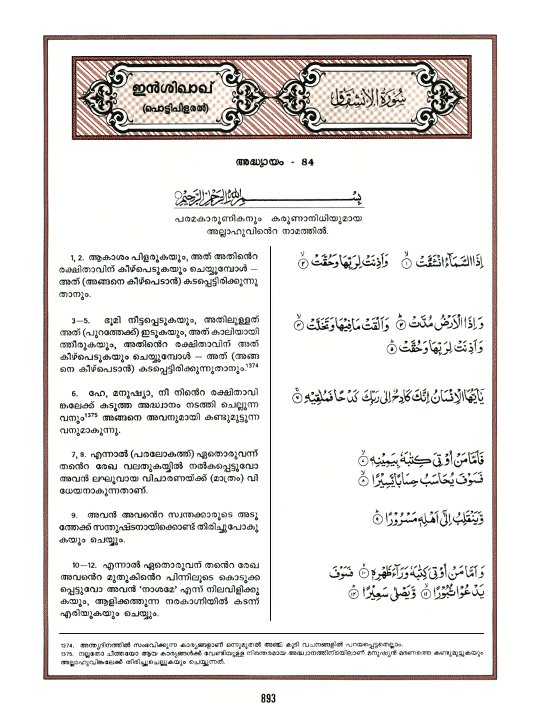 ഇൻശിഖാഖ്
(പൊട്ടിപിളരൽ)
سُورَةُ الِانْشِقَاقِ
അദ്ധ്യായം - 84
بِسْمِ اللَّهِ الرَّحْمَٰنِ الرَّحِيمِ
പരമകാരുണികനും കരുണാനിധിയുമായ
അല്ലാഹുവിൻെറ നാമത്തിൽ.
1, 2. ആകാശം പിളരുകയും, അത് അതിൻെറ
രക്ഷിതാവിന് കീഴ്പെടുകയും ചെയ്യുമ്പോൾ —
അത് (അങ്ങനെ കീഴ്പെടാൻ) കടപ്പെട്ടിരിക്കുന്നു
താനും.
إِذَا السَّمَاءُ انْشَقَّتْ ۝١ وَأَذِنَتْ لِرَبِّهَا وَحُقَّتْ ۝٢
3—5. ഭൂമി നീട്ടപ്പെടുകയും, അതിലുള്ളത്
അത് (പുറത്തേക്ക്) ഇടുകയും, അത് കാലിയായി
ത്തീരുകയും, അതിൻെറ രക്ഷിതാവിന് അത്
കീഴ്പെടുകയും ചെയ്യുമ്പോൾ — അത് (അങ്ങ
നെ കീഴ്പെടാൻ) കടപ്പെട്ടിരിക്കുന്നുതാനും.1374
وَإِذَا الْأَرْضُ مُدَّتْ ۝٣ وَأَلْقَتْ مَا فِيهَا وَتَخَلَّتْ ۝٤
وَأَذِنَتْ لِرَبِّهَا وَحُقَّتْ ۝٥
6. ഹേ, മനുഷ്യാ, നീ നിൻെറ രക്ഷിതാവി
ങ്കലേക്ക് കടുത്ത അദ്ധ്വാനം നടത്തി ചെല്ലുന്ന
വനും1375 അങ്ങനെ അവനുമായി കണ്ടുമുട്ടുന്ന
വനുമാകുന്നു.
يَا أَيُّهَا الْإِنْسَانُ إِنَّكَ كَادِحٌ إِلَىٰ رَبِّكَ كَدْحًا فَمُلَاقِيهِ ۝٦
7, 8. എന്നാൽ (പരലോകത്ത്) ഏതൊരുവന്ന്
തൻെറ രേഖ വലതുകയ്യിൽ നൽകപ്പെട്ടുവോ
അവൻ ലഘുവായ വിചാരണയ്ക്ക് (മാത്രം) വി
ധേയനാകുന്നതാണ്.
فَأَمَّا مَنْ أُوتِيَ كِتَابَهُ بِيَمِينِهِ ۝٧
فَسَوْفَ يُحَاسَبُ حِسَابًا يَسِيرًا ۝٨
9. അവൻ അവൻെറ സ്വന്തക്കാരുടെ അടു
ത്തേക്ക് സന്തുഷ്ടനായിക്കൊണ്ട് തിരിച്ചുപോകു
കയും ചെയ്യും.
وَيَنْقَلِبُ إِلَىٰ أَهْلِهِ مَسْرُورًا ۝٩
10—12. എന്നാൽ ഏതൊരുവന് തൻെറ രേഖ
അവൻെറ മുതുകിൻെറ പിന്നിലൂടെ കൊടുക്ക
പ്പെട്ടുവോ അവൻ 'നാശമേ' എന്ന് നിലവിളിക്കു
കയും, ആളിക്കത്തുന്ന നരകാഗ്നിയിൽ കടന്ന്
എരിയുകയും ചെയ്യും.
وَأَمَّا مَنْ أُوتِيَ كِتَابَهُ وَرَاءَ ظَهْرِهِ ۝١٠ فَسَوْفَ
يَدْعُو ثُبُورًا ۝١١ وَيَصْلَىٰ سَعِيرًا ۝١٢
1374. അന്ത്യദിനത്തിൽ സംഭവിക്കുന്ന കാര്യങ്ങളാണ് ഒന്നുമുതൽ അഞ്ചു കൂടി വചനങ്ങളിൽ പറയപ്പെട്ടതെല്ലാം.
1375. നല്ലതോ ചീത്തയോ ആയ കാര്യങ്ങൾക്ക് വേണ്ടിയുള്ള നിരന്തരമായ അദ്ധ്വാനത്തിനിടയിലാണ് മനുഷ്യൻ മരണത്തെ കണ്ടുമുട്ടുകയും
അല്ലാഹുവിങ്കലേക്ക് തിരിച്ചുചെല്ലുകയും ചെയ്യുന്നത്.
893